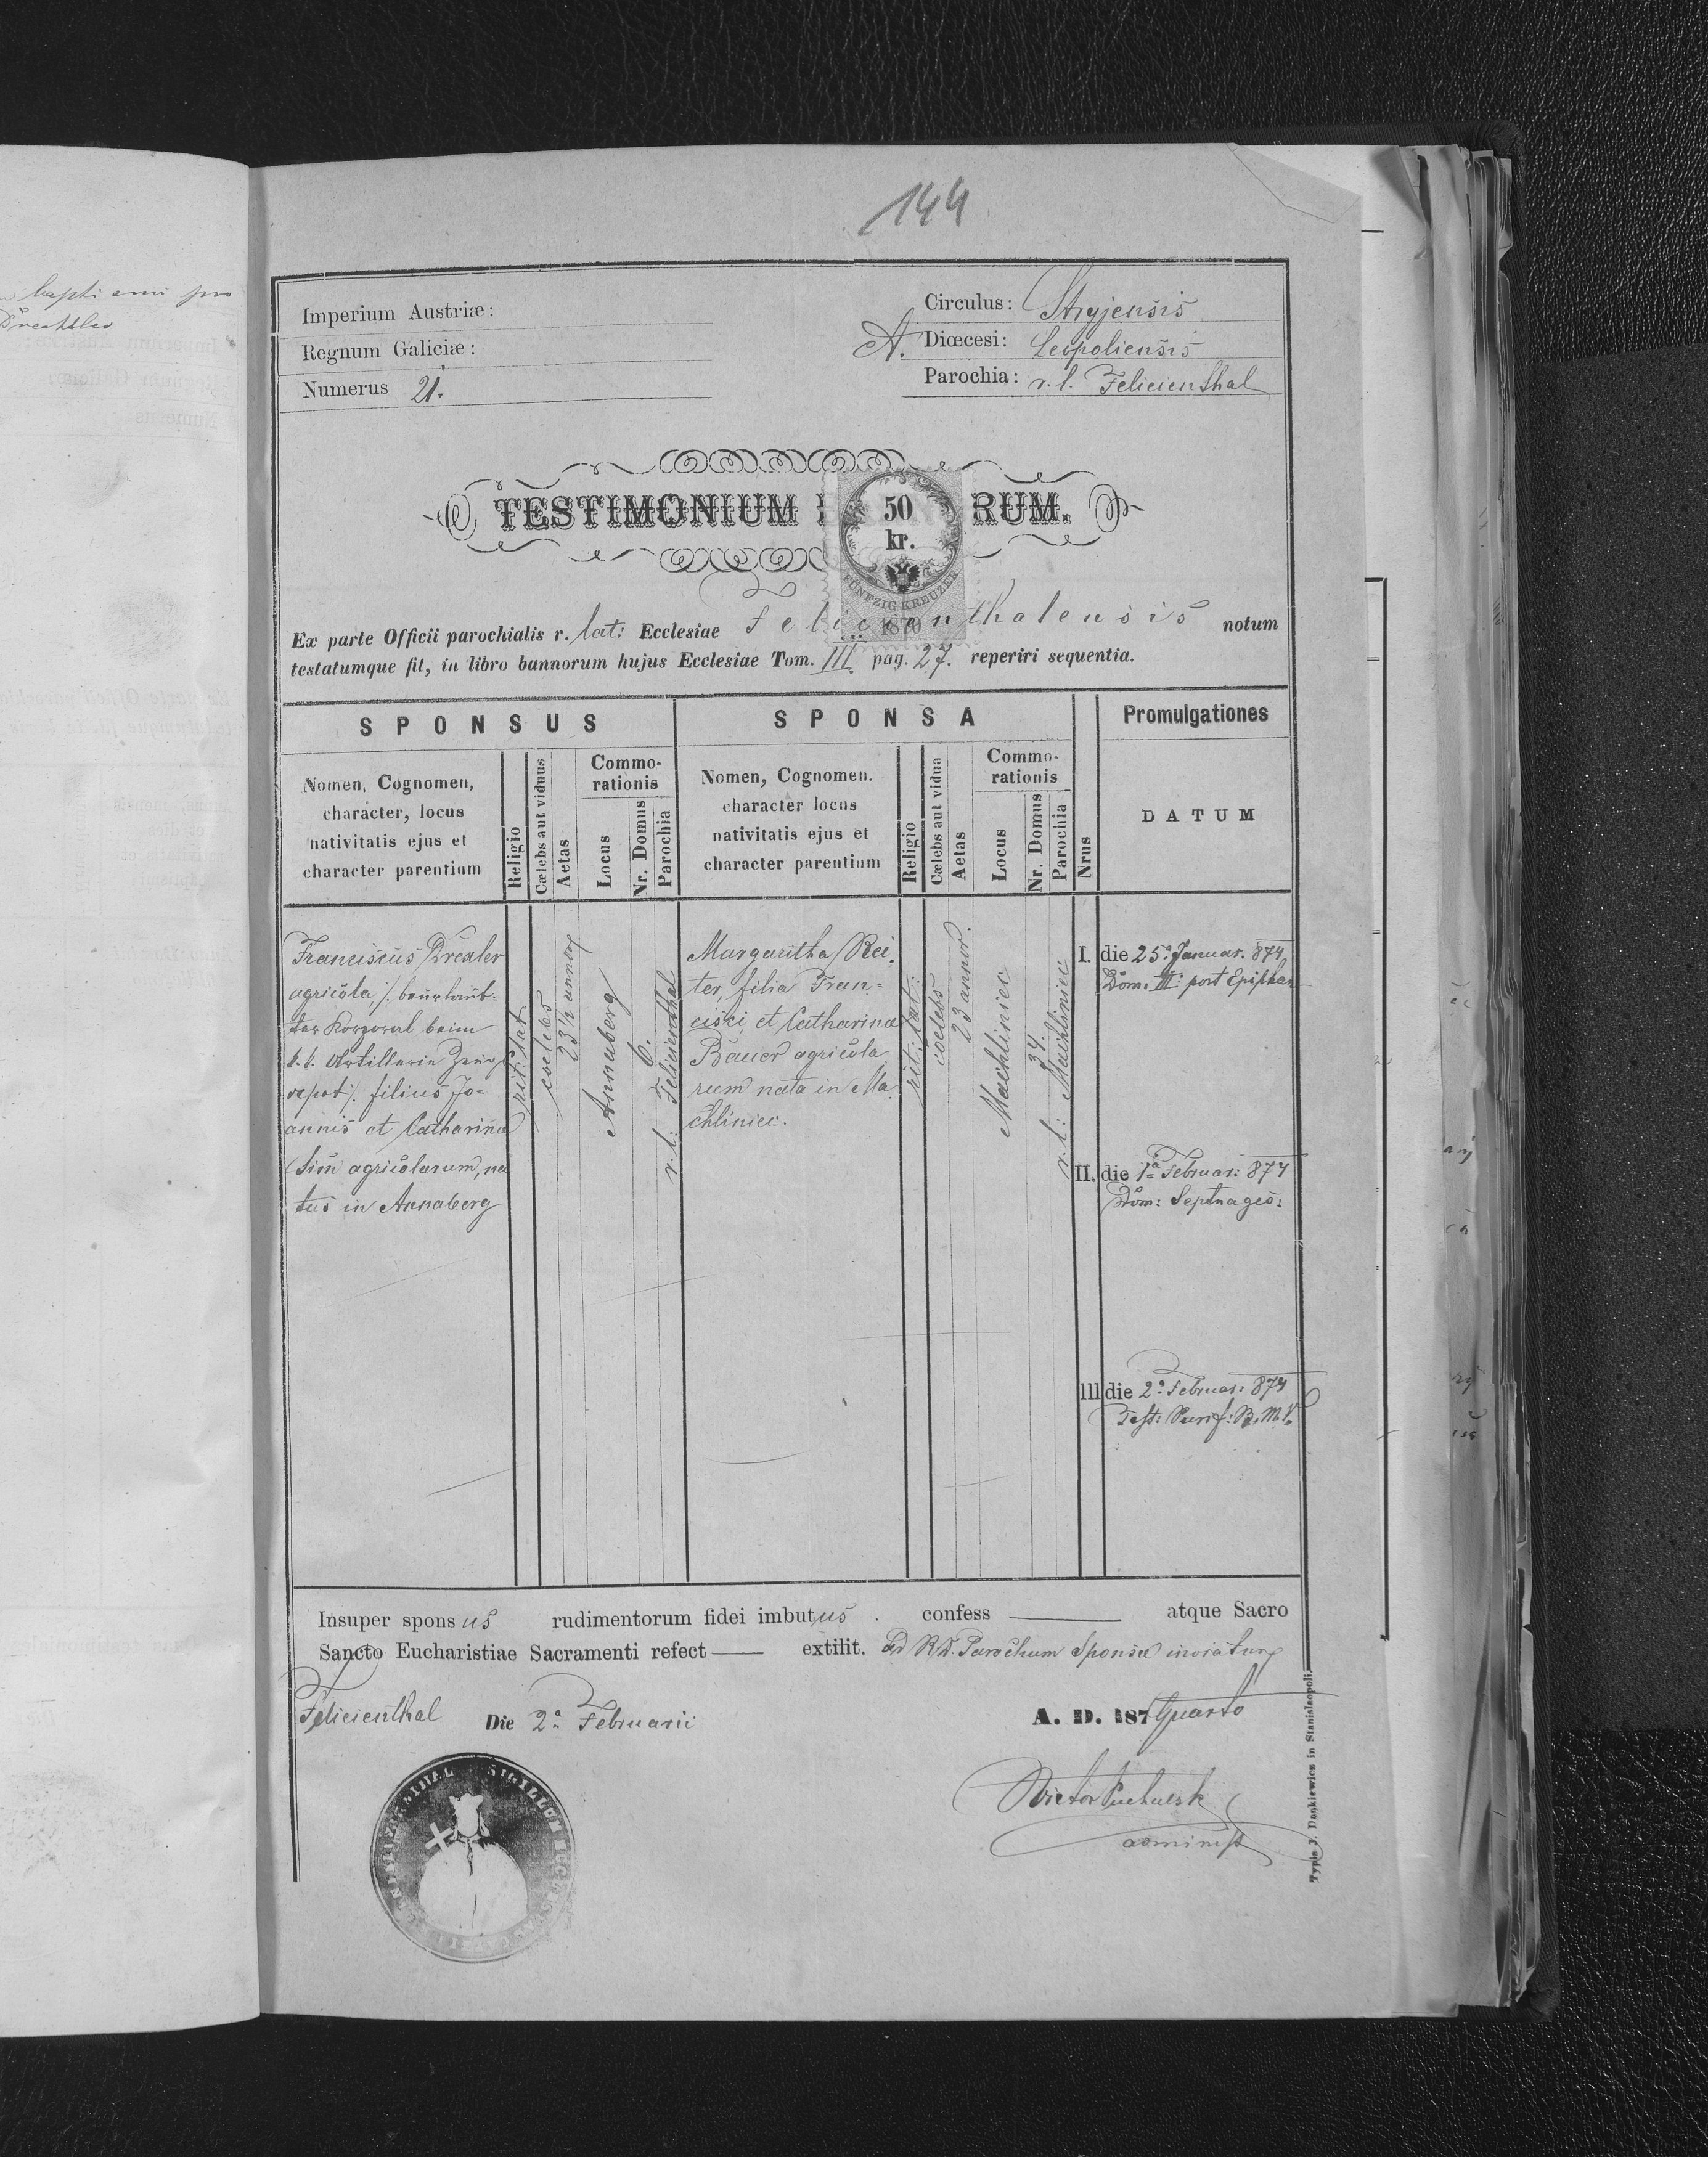 144
Imperium Austriæ:
Regnum Galiciæ:
Numerus 21.
Circulus: Stryjensis
A. Diœcesi: Leopoliensis
Parochia: r. l. Felicienthal
TESTIMONIUM RUM.
50
kr.
FÜNFZIG KREUZER
1870
Ex parte Officii parochialis r. lat: Ecclesiae Felicienthalensis notum
testatumque fit, in libro bannorum hujus Ecclesiae Tom. III pag. 27. reperiri sequentia.
SPONSUS
Nomen, Cognomen,
character, locus
nativitatis ejus et
character parentium
Religio
Cælebs aut viduus
Aetas
Commo-
rationis
Locus
Nr. Domus
Parochia
SPONSA
Nomen, Cognomen.
character locus
nativitatis ejus et
character parentium
Religio
Cælebs aut vidua
Aetas
Commo-
rationis
Locus
Nr. Domus
Parochia
Nrus
Promulgationes
DATUM
Franciscus
agricola /: beurlaub-
ter Korporal beim
k. k. Artillerie Zeugs
depot :/ filius Jo-
annis et Catharinæ
Sim agricolarum, na
tus in Annaberg
rit: lat
coelebs
23½ annor
Annaberg
6.
r. l: Felicienthal
Margaritha Rei-
ter, filia Fran-
cisci et Catharinæ
Bauer agricola
rum nata in Ma
chliniec.
rit: lat:
coelebs
23 annor.
Machliniec
34.
r. l: Machliniec
I. die 25a Januar. 874
Dom: III post Epiphan
II. die 1a Februar: 874
Dom: Septuages:
III die 2a Februar: 874
Fest: Purif: B. M. V.
Insuper sponsus rudimentorum fidei imbutus . confess atque Sacro
Sancto Eucharistiae Sacramenti refect extitit. Ad RD. Parochum Sponsæ inviatur
Felicienthal Die 2a Februarii A. D. 187 Quarto
Victor
administ
SIGILLUM
Typis J. Dankiewicz in Stanislaopoli.
baptismi pro